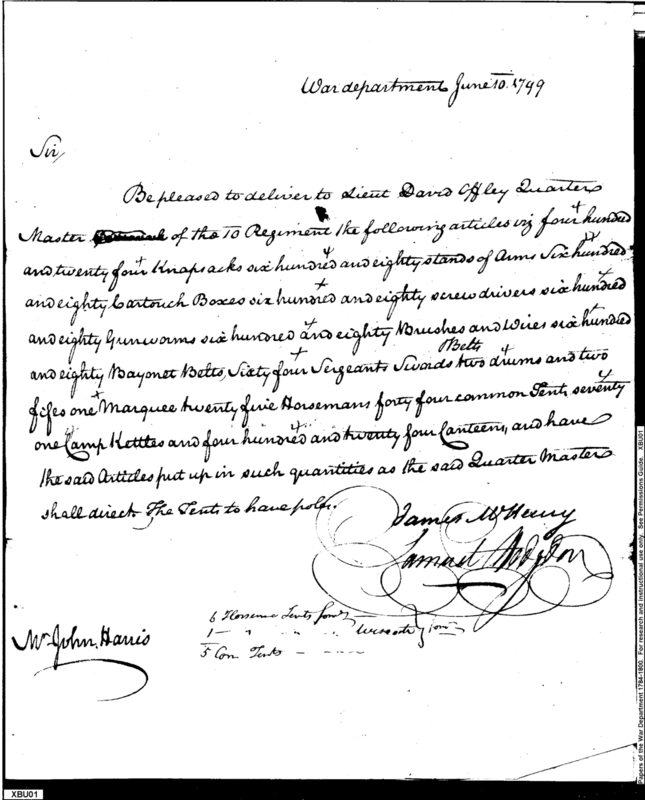 War department June 10. 1799
Sir,
Be pleased to deliver to Lieut David Offley Quarter
Master of the 10 Regiment the following articles viz four hundred
and twenty four Knapsacks six hundred and eighty stands of Arms Six hundred
and eighty Cartouch Boxes six hundred and eighty screw drivers six hundred
and eighty Gunworms six hundred and eighty Brushes and Wires six hundred
Belts
and eighty Bayonet Belts, Sixty four Sergeants Swords two drums and two
fifes one Marquee twenty five Horsemans forty four common Tents seventy
one Camp Kettles and four hundred and twenty four Canteens, and have
the said Articles put up in such quantities as the said Quarter Master
shall direct The Tents to have poles.
James McHenry
Samuel Hodgdon
6 Horsemen Tents
1 — " " "
5 Com Tents — ——
Mr John Harris
Papers of the War Department 1784-1800. For research and instructional use only. See Permissions Guide. XBU01
XBU01